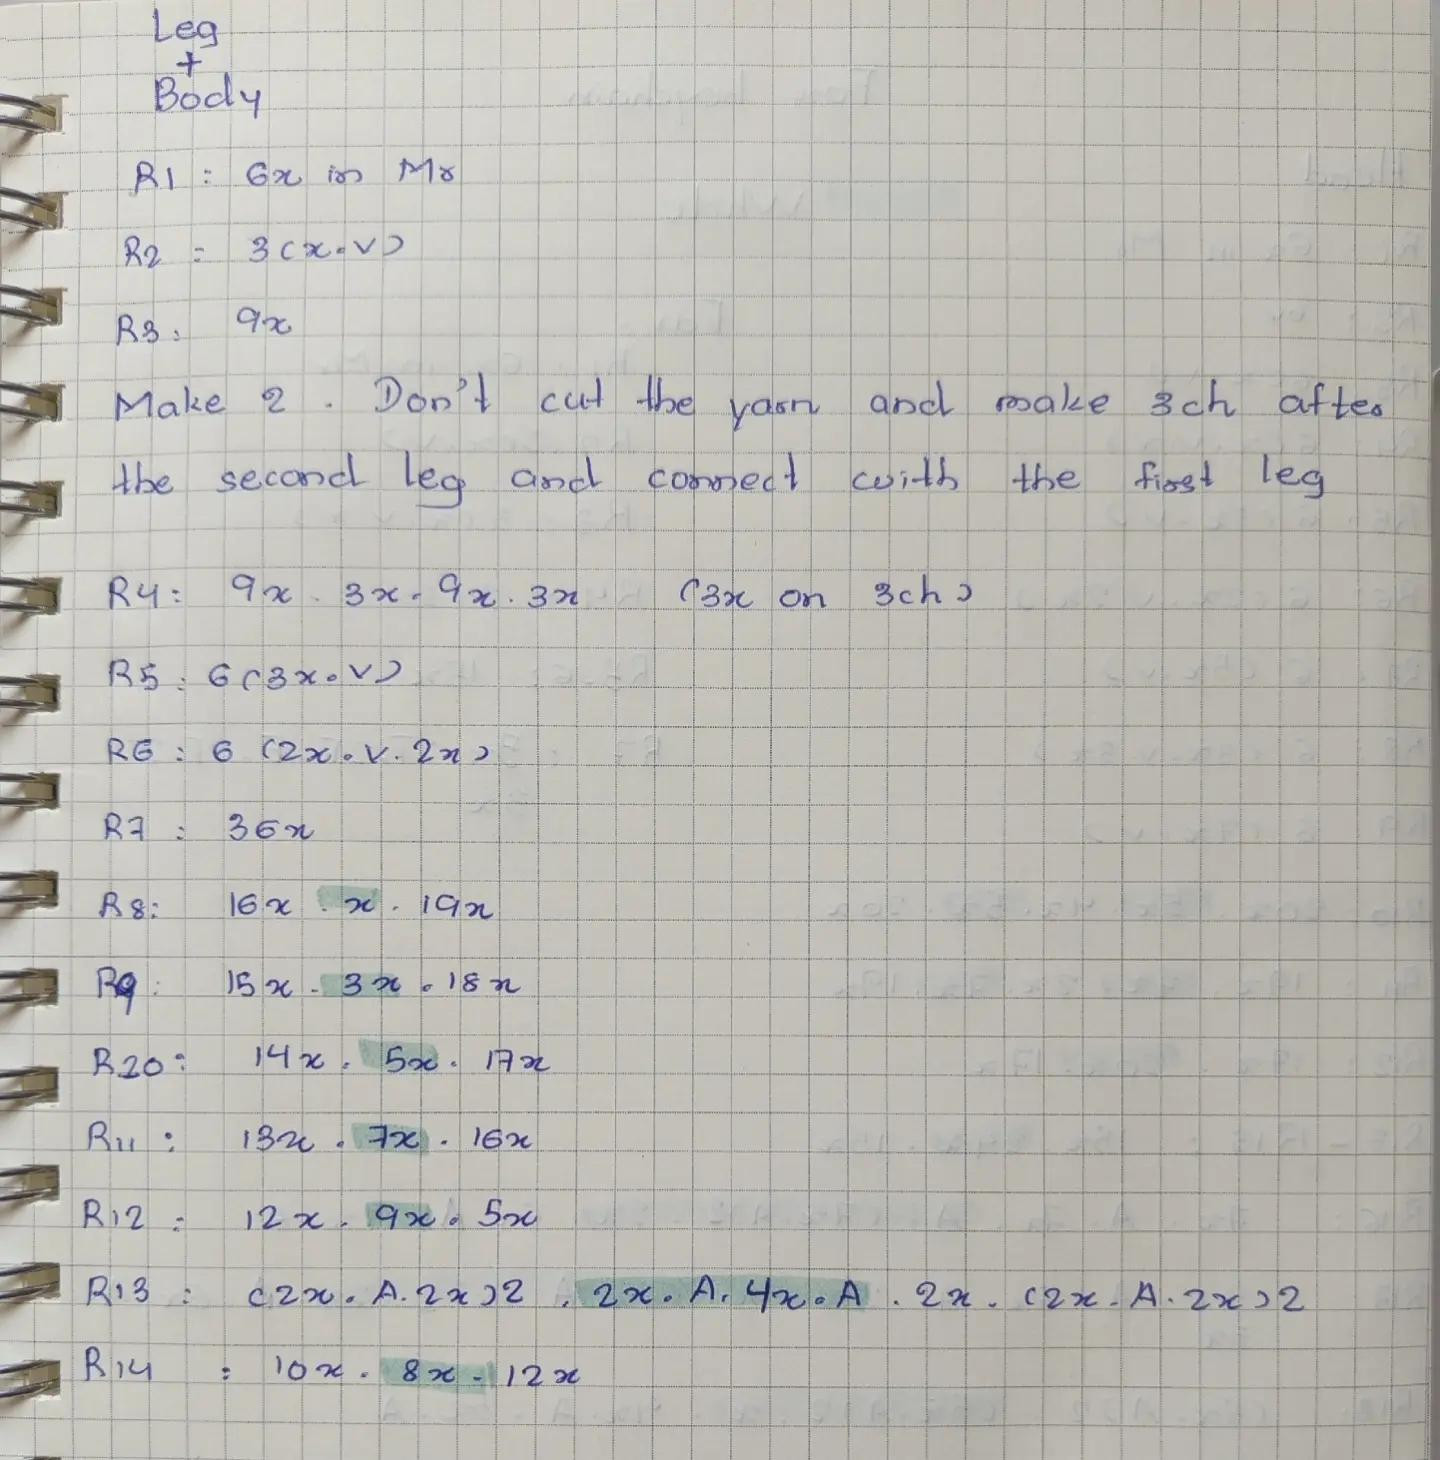 Leg
+
Body
R1 : 6x in Mr
R2 : 3(x.v)
R3: 9x
Make 2. Don't cut the yarn and make 3ch after
the second leg and connect with the first leg
R4: 9x. 3x. 9x. 3x (3x on 3ch)
R5: 6(3x.v)
R6: 6 (2x.v.2x)
R7: 36x
R8: 16x . x . 19x
R9: 15x . 3x . 18x
R20: 14x . 5x . 17x
R11: 13x . 7x . 16x
R12: 12x . 9x . 5x
R13: (2x. A. 2x)2 . 2x. A. 4x. A . 2x. (2x. A. 2x)2
R14 : 10x . 8x . 12x